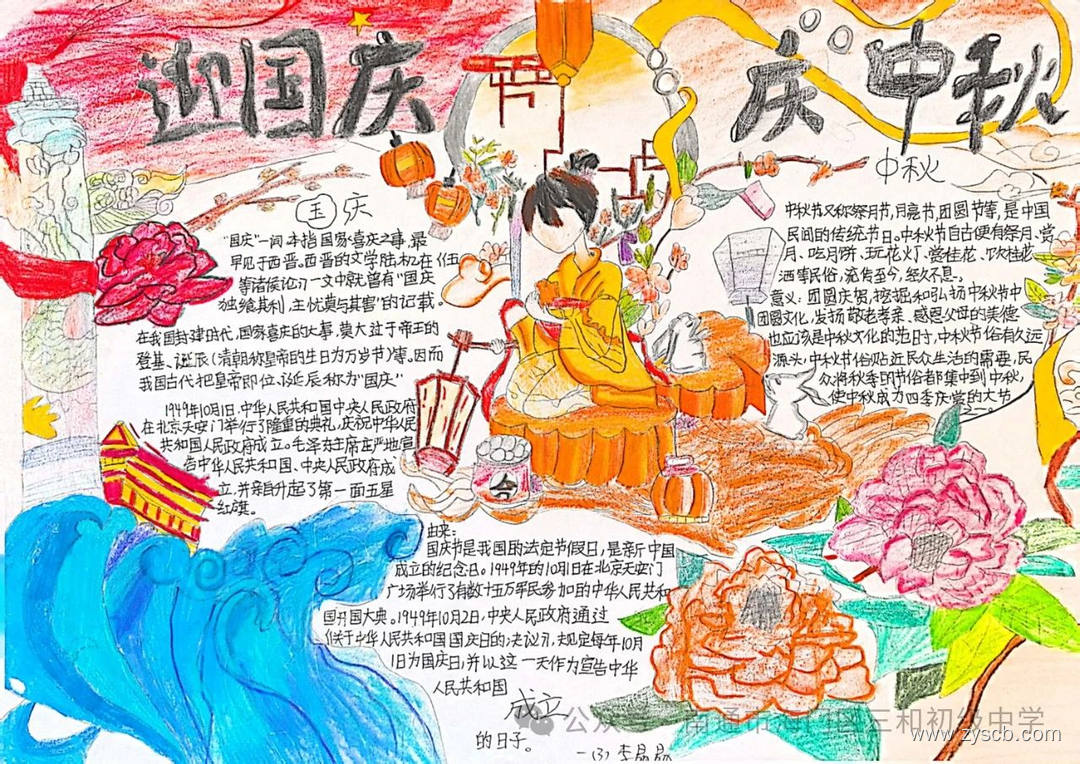 迎国庆
庆中秋
国庆
"国庆"一词,本指国家喜庆之事,最
早见于西晋。西晋的文学陆机在《五
等诸侯论》一文中就曾有"国庆
独飨其利,主忧莫与其害"的记载。
在我国封建时代,国家喜庆的大事,莫大过于帝王的
登基、诞辰(清朝称皇帝的生日为万岁节)等。因而
我国古代把皇帝即位、诞辰称为"国庆"
1949年10月1日,中华人民共和国中央人民政府
在北京天安门举行了隆重的典礼,庆祝中华人民
共和国人民政府成立。毛泽东主席庄严地宣
告中华人民共和国、中央人民政府成
立,并亲自升起了第一面五星
红旗。
由来:
国庆节是我国的法定节假日,是新中国
成立的纪念日。1949年的10月1日在北京天安门
广场举行了有数十五万军民参加的中华人民共和
国开国大典。1949年10月2日,中央人民政府通过
《关于中华人民共和国国庆日的决议》,规定每年10月
1日为国庆日,并以这一天作为宣告中华
人民共和国
成立
的日子。
中秋
中秋节又称祭月节,月亮节,团圆节等,是中国
民间的传统节日。中秋节自古便有祭月、赏
月、吃月饼、玩花灯、赏桂花、饮桂花
酒等民俗,流传至今,经久不息。
意义:团圆庆贺,挖掘和弘扬中秋节中
团圆文化,发扬敬老孝亲、感恩父母的美德
也应该是中秋文化的范日于,中秋节俗有久远
源头,中秋节俗贴近民众生活的需要,民
众将秋季的节俗都集中到中秋,
使中秋成为四季庆赏的大节
之一。
一(3) 李晶晶
公众号 南通市海门区三和初级中学
www.zyscb.com